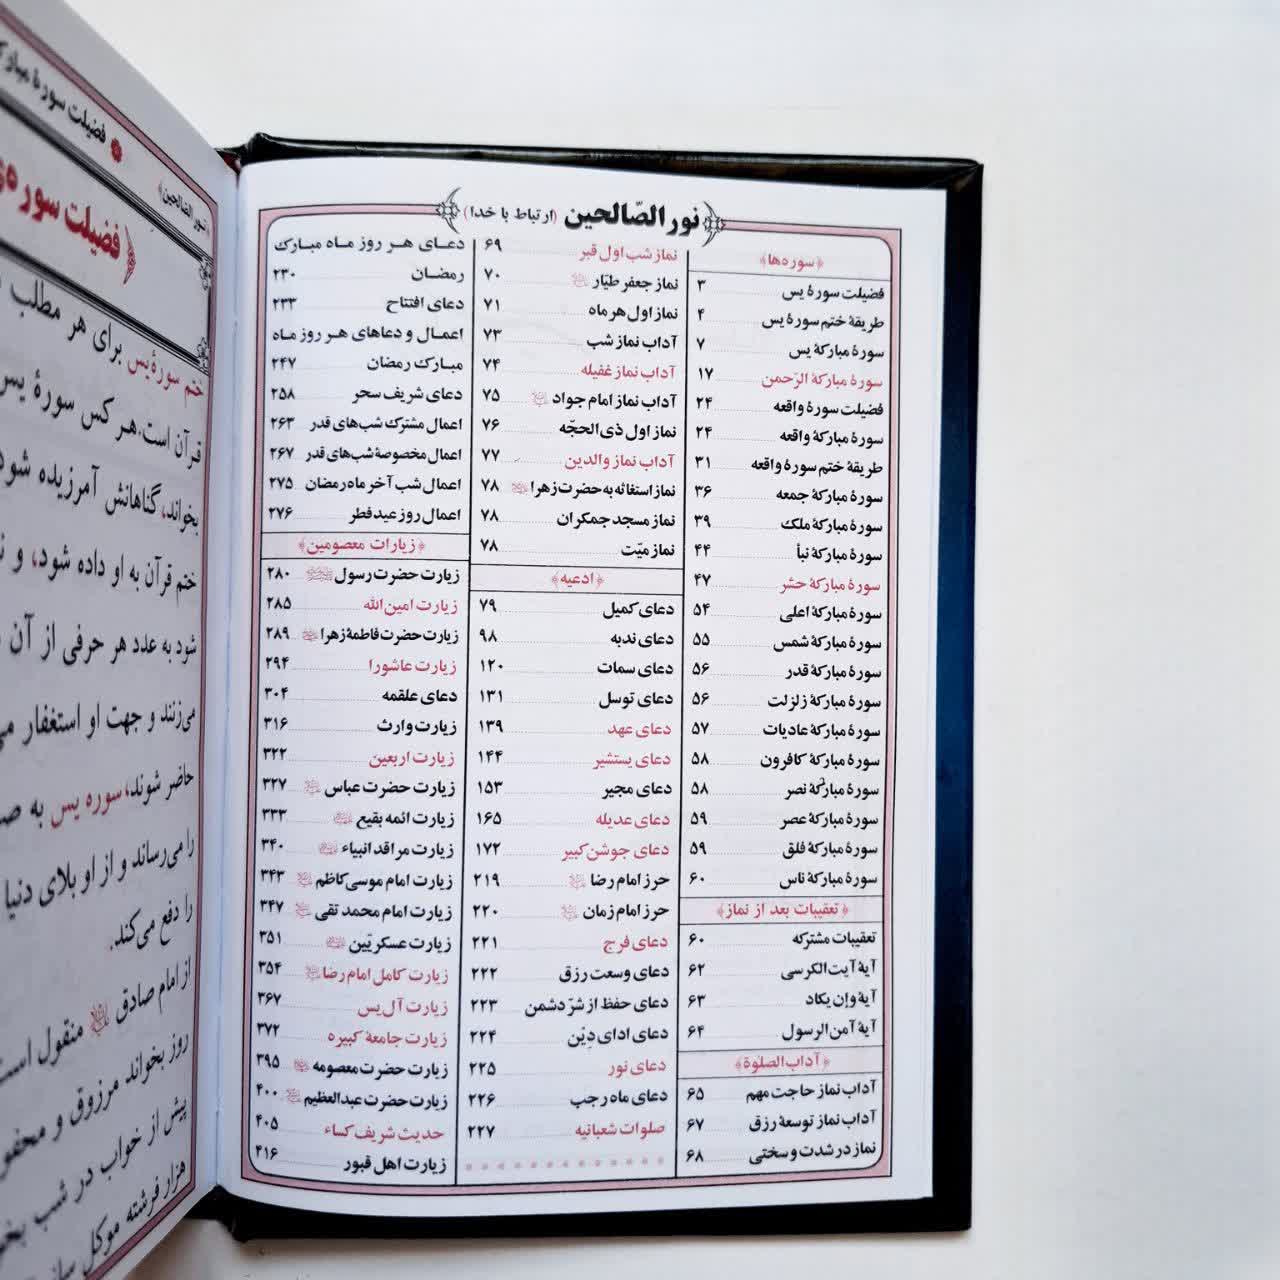 نور الصّالحین (ارتباط با خدا)
﴿سوره‌ها﴾
فضیلت سورهٔ یس ۳
طریقهٔ ختم سورهٔ یس ۴
سورهٔ مبارکهٔ یس ۷
سورهٔ مبارکهٔ الرّحمن ۱۷
فضیلت سورهٔ واقعه ۲۴
سورهٔ مبارکهٔ واقعه ۲۴
طریقهٔ ختم سورهٔ واقعه ۳۱
سورهٔ مبارکهٔ جمعه ۳۶
سورهٔ مبارکهٔ ملک ۳۹
سورهٔ مبارکهٔ نبأ ۴۴
سورهٔ مبارکهٔ حشر ۴۷
سورهٔ مبارکهٔ اعلی ۵۴
سورهٔ مبارکهٔ شمس ۵۵
سورهٔ مبارکهٔ قدر ۵۶
سورهٔ مبارکهٔ زلزلت ۵۶
سورهٔ مبارکهٔ عادیات ۵۷
سورهٔ مبارکهٔ کافرون ۵۸
سورهٔ مبارکهٔ نصر ۵۸
سورهٔ مبارکهٔ عصر ۵۹
سورهٔ مبارکهٔ فلق ۵۹
سورهٔ مبارکهٔ ناس ۶۰
﴿تعقیبات بعد از نماز﴾
تعقیبات مشترکه ۶۰
آیهٔ آیت الکرسی ۶۲
آیهٔ وإن یکاد ۶۳
آیهٔ آمن الرسول ۶۴
﴿آداب الصلوة﴾
آداب نماز حاجت مهم ۶۵
آداب نماز توسعهٔ رزق ۶۷
نماز در شدت و سختی ۶۸
نماز شب اول قبر ۶۹
نماز جعفر طیّار ۷۰
نماز اول هر ماه ۷۱
آداب نماز شب ۷۳
آداب نماز غفیله ۷۴
آداب نماز امام جواد ۷۵
نماز اول ذی الحجّه ۷۶
آداب نماز والدین ۷۷
نماز استغاثه به حضرت زهرا ۷۸
نماز مسجد جمکران ۷۸
نماز میّت ۷۸
﴿ادعیه﴾
دعای کمیل ۷۹
دعای ندبه ۹۸
دعای سمات ۱۲۰
دعای توسل ۱۳۱
دعای عهد ۱۳۹
دعای یستشیر ۱۴۴
دعای مجیر ۱۵۳
دعای عدیله ۱۶۵
دعای جوشن کبیر ۱۷۲
حرز امام رضا ۲۱۹
حرز امام زمان ۲۲۰
دعای فرج ۲۲۱
دعای وسعت رزق ۲۲۲
دعای حفظ از شرّ دشمن ۲۲۳
دعای ادای دِیْن ۲۲۴
دعای نور ۲۲۵
دعای ماه رجب ۲۲۶
صلوات شعبانیه ۲۲۷
دعـای هـر روز مـاه مبـارک
رمضـان ۲۳۰
دعای افتتاح ۲۳۳
اعمـال و دعاهای هـر روز مـاه
مبـارک رمضان ۲۴۷
دعای شریف سحر ۲۵۸
اعمال مشترک شب‌های قدر ۲۶۳
اعمال مخصوصهٔ شب‌های قدر ۲۶۷
اعمال شب آخر ماه رمضان ۲۷۵
اعمال روز عید فطر ۲۷۶
﴿زیارات معصومین﴾
زیارت حضرت رسول ۲۸۰
زیارت امین الله ۲۸۵
زیارت حضرت فاطمهٔ زهرا ۲۸۹
زیارت عاشورا ۲۹۴
دعای علقمه ۳۰۴
زیارت وارث ۳۱۶
زیارت اربعین ۳۲۲
زیارت حضرت عباس ۳۲۷
زیارت ائمه بقیع ۳۳۳
زیارت مراقد انبیاء ۳۴۰
زیارت امام موسی کاظم ۳۴۳
زیارت امام محمد تقی ۳۴۷
زیارت عسکریّین ۳۵۱
زیارت کامل امام رضا ۳۵۴
زیارت آل یس ۳۶۷
زیارت جامعهٔ کبیره ۳۷۲
زیارت حضرت معصومه ۳۹۵
زیارت حضرت عبدالعظیم ۴۰۰
حدیث شریف کساء ۴۰۵
زیارت اهل قبور ۴۱۶
فضیلت سورهٔ
نور الصالحین
فضیلت سوره‌ی
ختم سورهٔ یس برای هر مطلب
قرآن است. هر کس سورهٔ یس
بخواند، گناهانش آمرزیده شود
ختم قرآن به او داده شود، و
شود به عدد هر حرفی از آن
می‌زنند و جهت او استغفار
حاضر شوند، سوره یس به
را می‌رساند و از او بلای دنیا
را دفع می‌کند.
از امام صادق منقول است
روز بخواند مرزوق و محفو
پیش از خواب در شب
هزار فرشته موکل